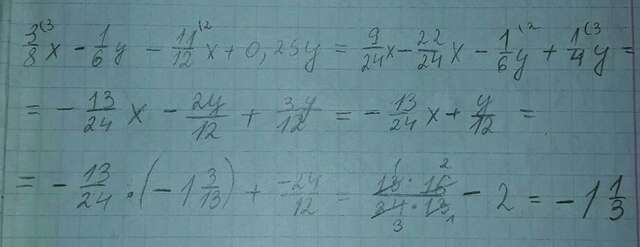 3/8 (3 x - 1/6 y - 11/12 (2 x + 0,25y = 9/24 x - 22/24 x - 1/6 (2 y + 1/4 (3 y =
= - 13/24 x - 2y/12 + 3y/12 = - 13/24 x + y/12 =
= - 13/24 · (-1 3/13) + -24/12 = 1 2 13 · 16 / 24 · 13 3 1 - 2 = -1 1/3